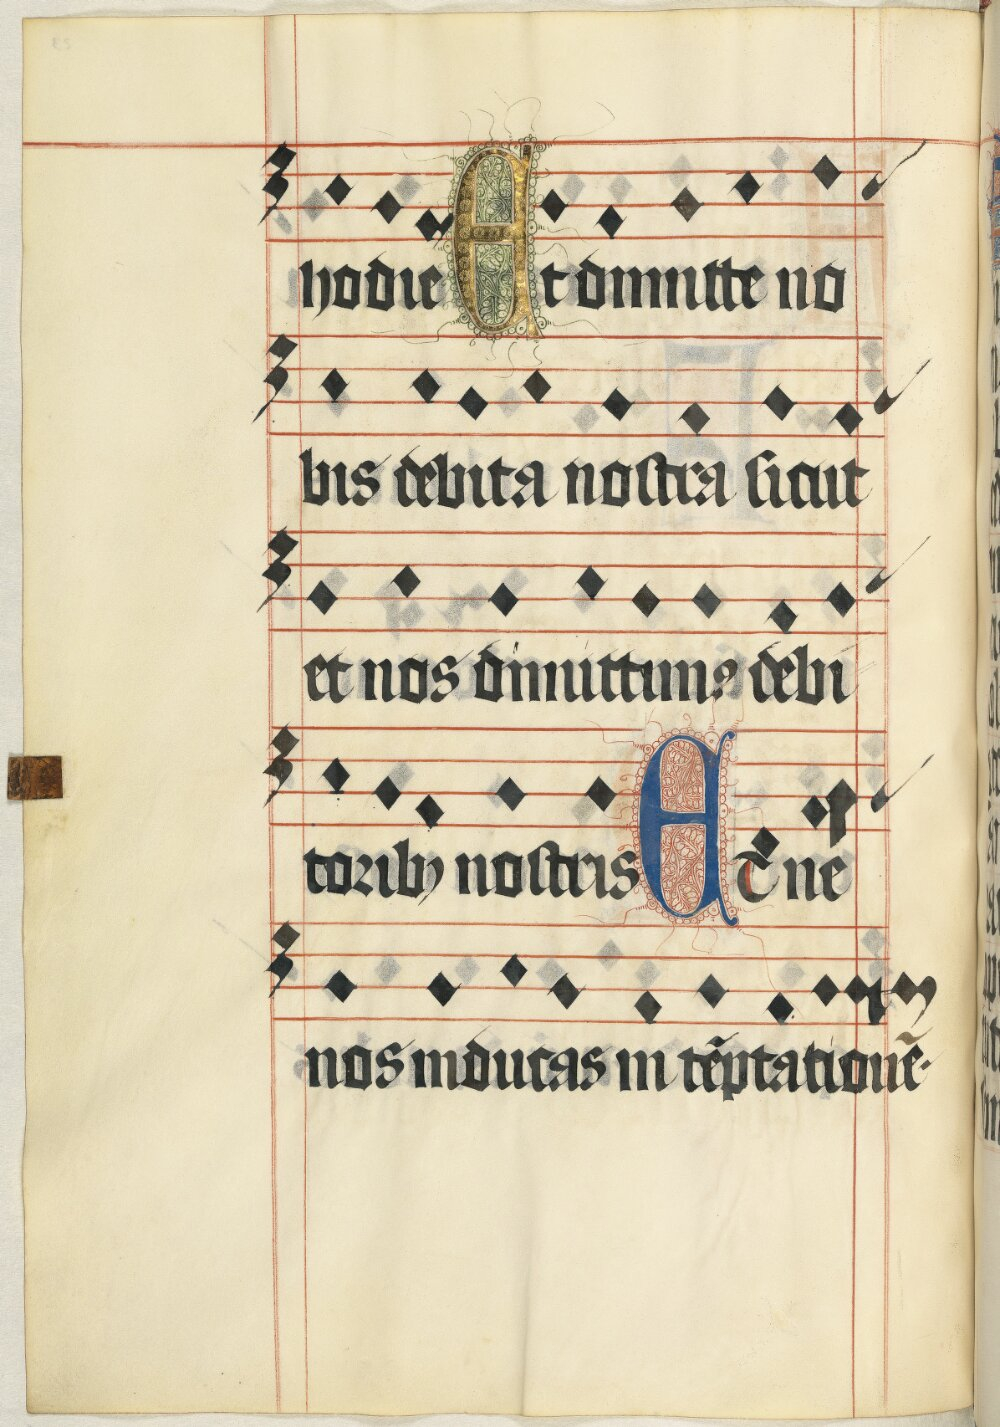 hodie Et dimitte no
bis debita nostra sicut
et nos dimittimꝰ debi
toribꝫ nostris ET ne
nos inducas in tẽptationẽ.